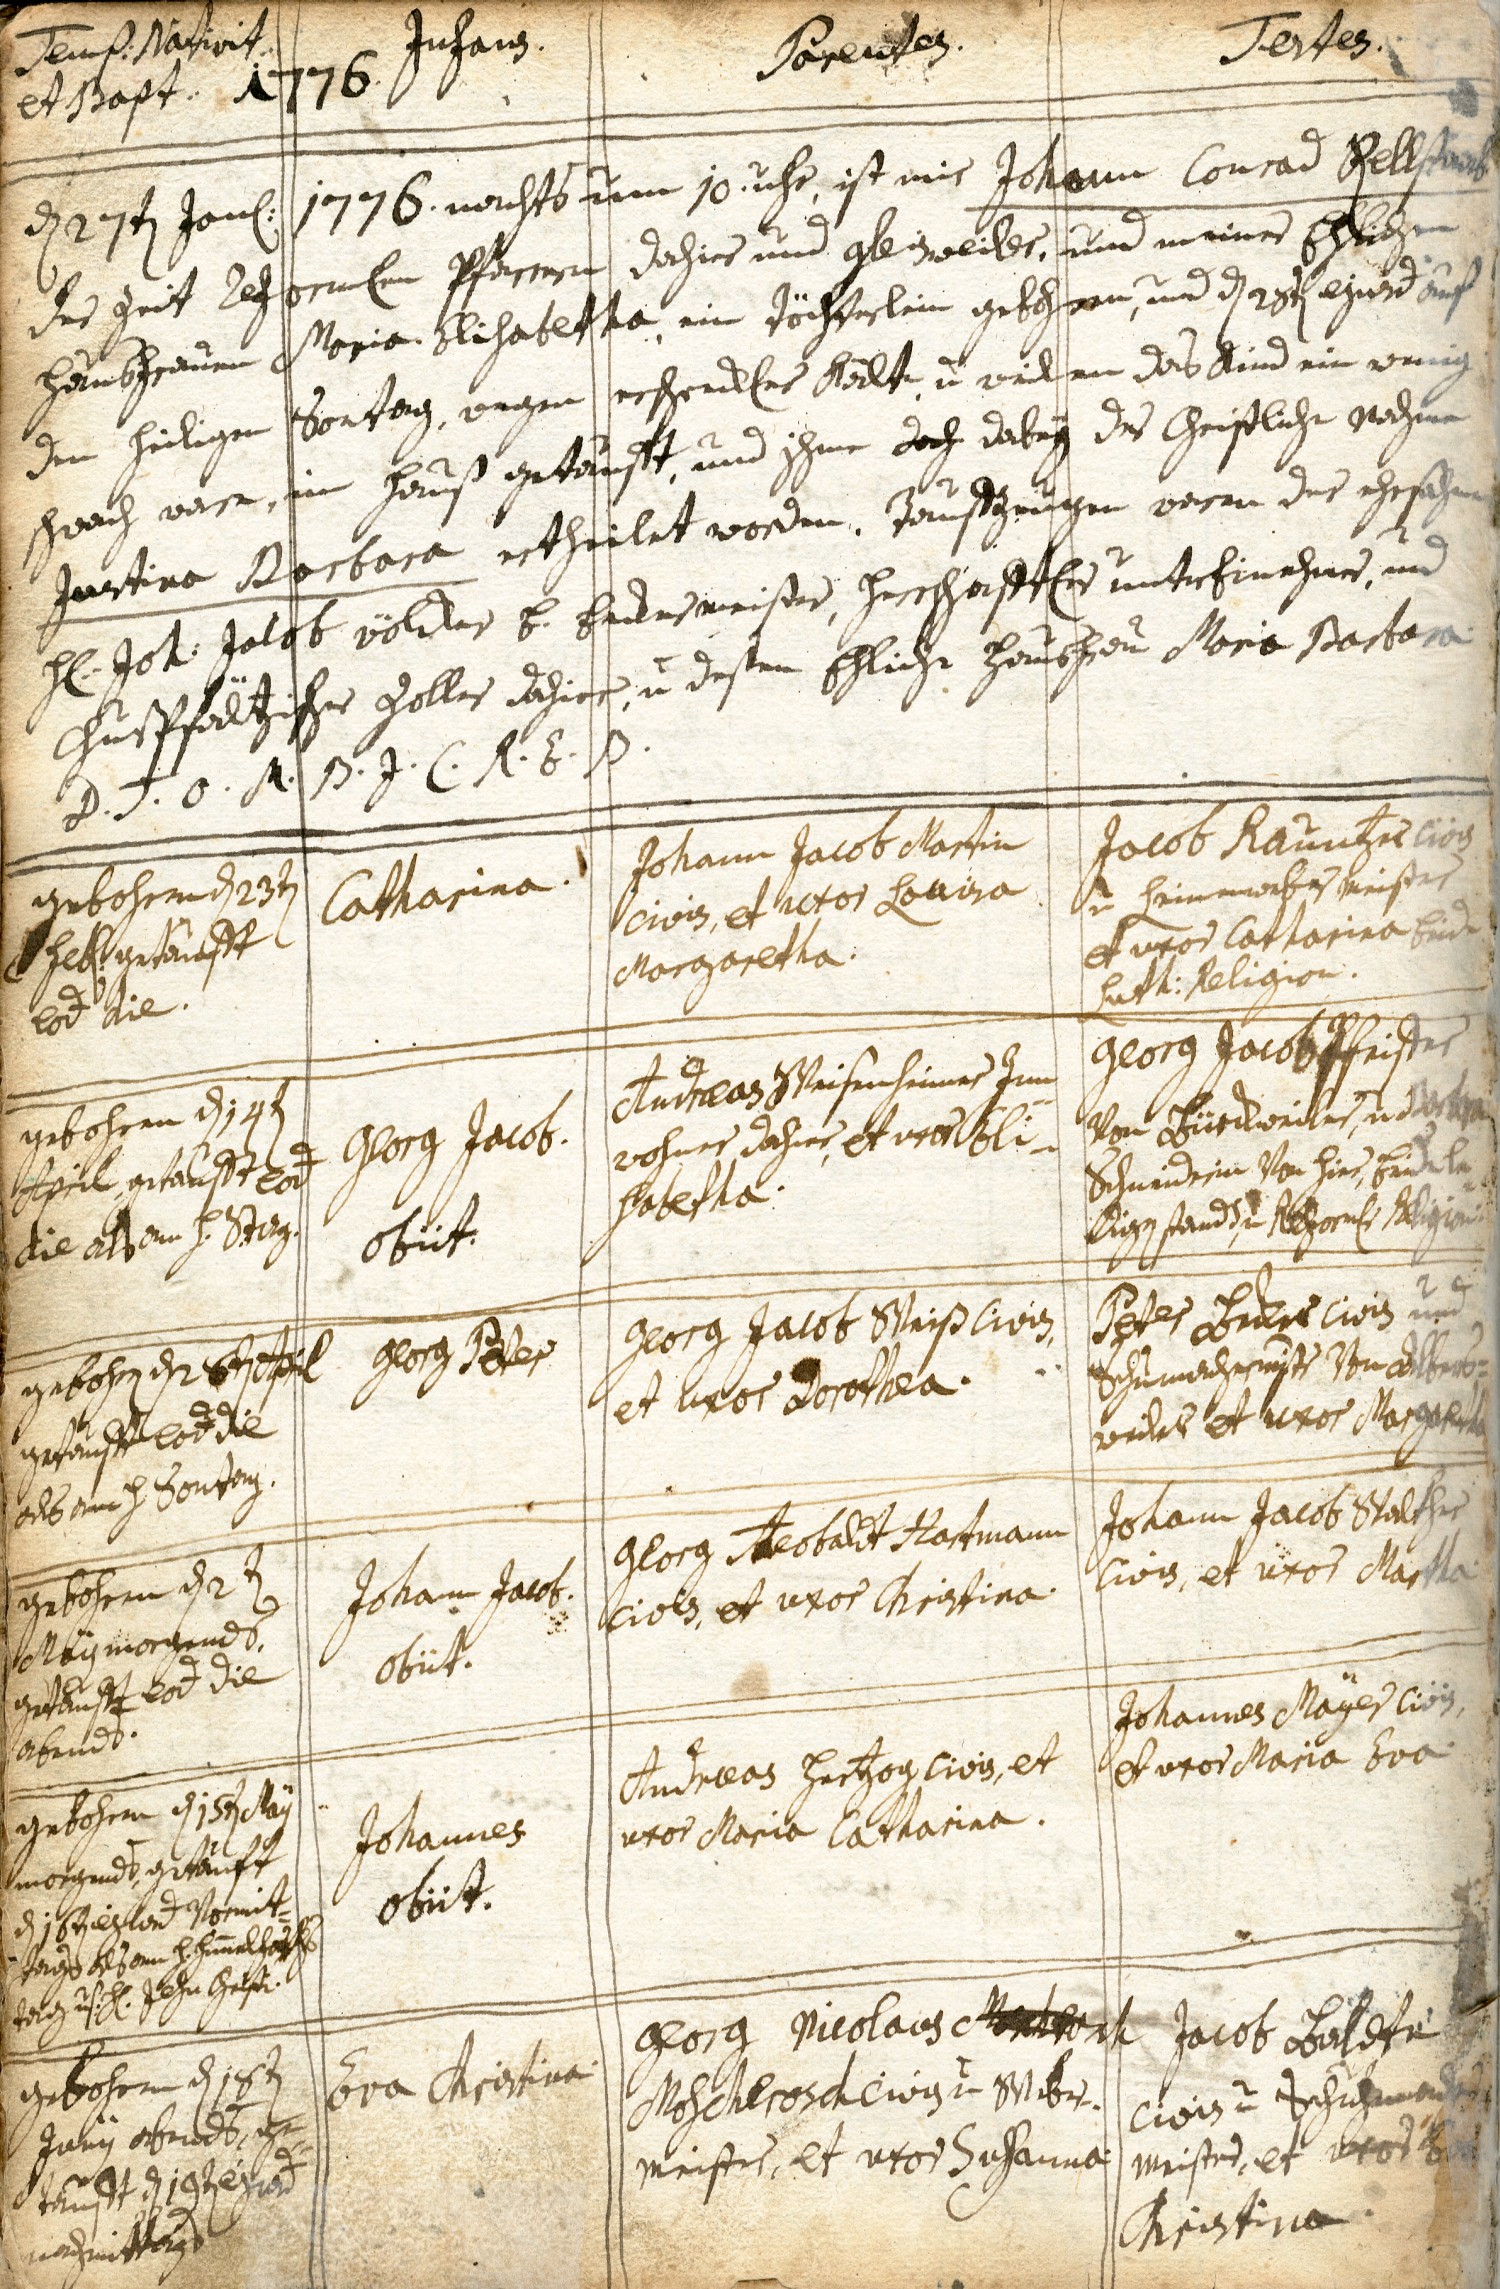 Temp: Nativit.
et Bapt. 1776. Infans. Parentes. Testes.
d 27t Janl: 1776. nachts um 10. uhr, ist mir Johann Conrad
der Zeit Reformten Pfarrern dahier und Gleisweiler, und meiner Ehlichen
Haußfrauen Maria Elisabetha, ein Töchterlein gebohren, und d 28t ejusd auf
den heiligen Sontag, wegen Kält u weilen das Kind ein wenig
schwach ware, im Hauß getaufft, und ihme doch dabey der Christliche Nahme
Justina Barbara ertheilet worden. Taufzeugen waren der ehrsahme
H. Joh: Jacob völcker b. beckermeister, Herrschafftler unterEinehmer, und
Churpfältzischer Zoller dahier, u dessen Ehliche Haußfrau Maria Barbara
D. T. O. M. B. J. C. R. E. B.
gebohren d 23t
Feb: getaufft
eod die.
Catharina.
Johann Jacob Martin
civis, et uxor Louisa
Margaretha.
Jacob Kauntzer civis
u Leinenweber meister
et uxor Catharina beide
Luth: Religion.
gebohren d 14t
April, getaufft eod
die als am h. Stag.
Georg Jacob.
obiit.
Andreas Weisenheimer Inn-
wohner dahier, et uxor Eli-
sabetha.
Georg Jacob Pfeister
Von Bürckweiler, u
Schneiderin Von hier, beide le-
digen stands, u Reformter Religion
gebohrn d 28t April
getaufft eod die
als am h Sontag.
Georg Peter
Georg Jacob Weiß civis,
et uxor Dorothea.
Peter civis und
Schumachermstr Von Albers-
weiler et uxor Margaretha
gebohren d 2t
Maÿ morgends,
getaufft eod die
abends.
Johann Jacob.
obiit.
Georg Theobaldt Hartmann
civis, et uxor Christina.
Johann Jacob Walther
civis, et uxor Martha
gebohren d 15t Maÿ
morgends, getaufft
d 16t ejusd Vormit-
tags als am h. Himmelfarths
tag Jesu Christi.
Johannes
obiit.
Andreas Hertzog civis, et
uxor Maria Catharina.
Johannes Maÿer civis,
et uxor Maria Eva
gebohren d 18t
Junÿ abends, ge-
taufft d 19t ejusd
nachmittags
Eva Christina
Georg Nicolaus
Moscherosch civis u Weber-
meister, et uxor Susanna
Jacob Boldt
civis u Schuhmacher
meister, et uxor Eva
Christina.